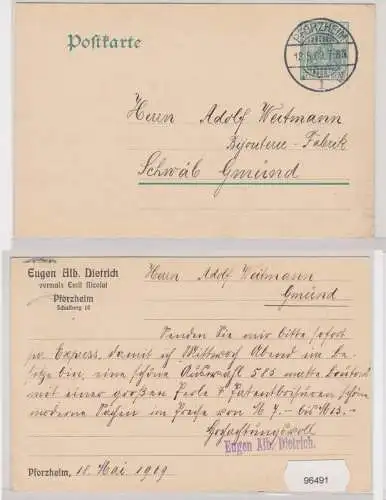 Postkarte
PFORZHEIM
18.5.09. 7-8N.
1
Herrn Adolf Weitmann
Bijouterie-Fabrik
Schwäb Gmünd
Eugen Alb. Dietrich
vormals Emil Nicolai
Pforzheim
Schulberg 10
Herrn Adolf Weitmann
Gmünd
Senden Sie mir bitte sofort
pr Express, damit ich Mittwoch Abend im Be-
sitze bin, eine schöne Auswahl 585 matte Boutons
mit einer großen Perle & Patentbrisüren schöne
moderne Sachen im Preise von M 7.- bis M 13.-
Hochachtungsvoll
Eugen Alb. Dietrich.
Pforzheim, 18 Mai 1909
96491